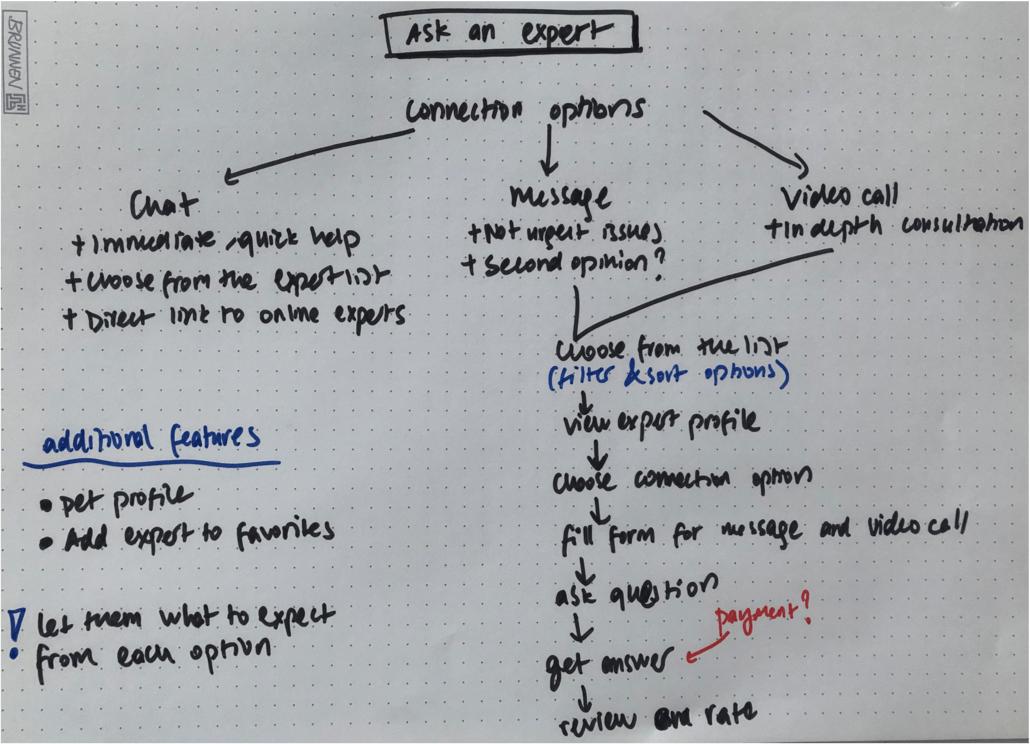 BRUNNEN
Ask an expert
Connection options
Chat
+ Immediate, quick help
+ Choose from the expert list
+ Direct link to online experts
Message
+ Not urgent issues
+ Second opinion?
Video call
+ In depth consultation
Choose from the list
(filter & sort options)
view expert profile
Choose connection option
fill form for message and video call
ask question
payment?
get answer
review and rate
additional features
• pet profile
• Add expert to favorites
! Let them what to expect
from each option